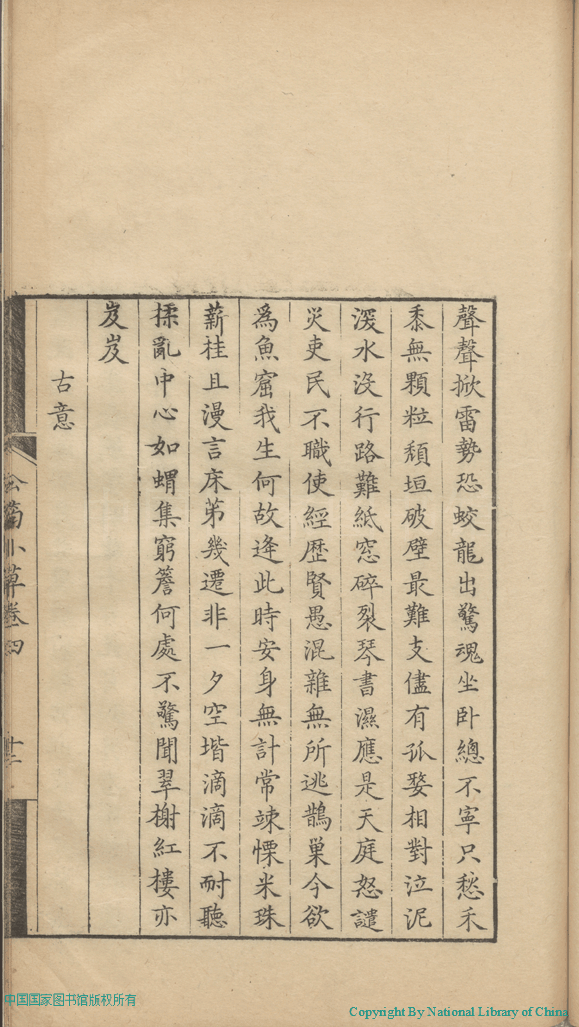 聲聲掀雷勢恐蛟龍出驚魂坐卧總不寜只愁禾
黍無顆粒頹垣破壁最難支儘有孤嫠相對泣泥
深水没行路難紙窓碎裂琴書濕應是天庭怒譴
災吏民不職使經歴賢愚混雜無所逃鵲巢今欲
爲魚窟我生何故逢此時安身無計常竦慄米珠
薪桂且漫言床苐幾遷非一夕空堦滴滴不耐聽
揉亂中心如蝟集窮簷何處不驚聞翠榭紅樓亦
岌岌
古意
小草卷四
十二
中国国家图书馆版权所有
Copyright By National Library of China